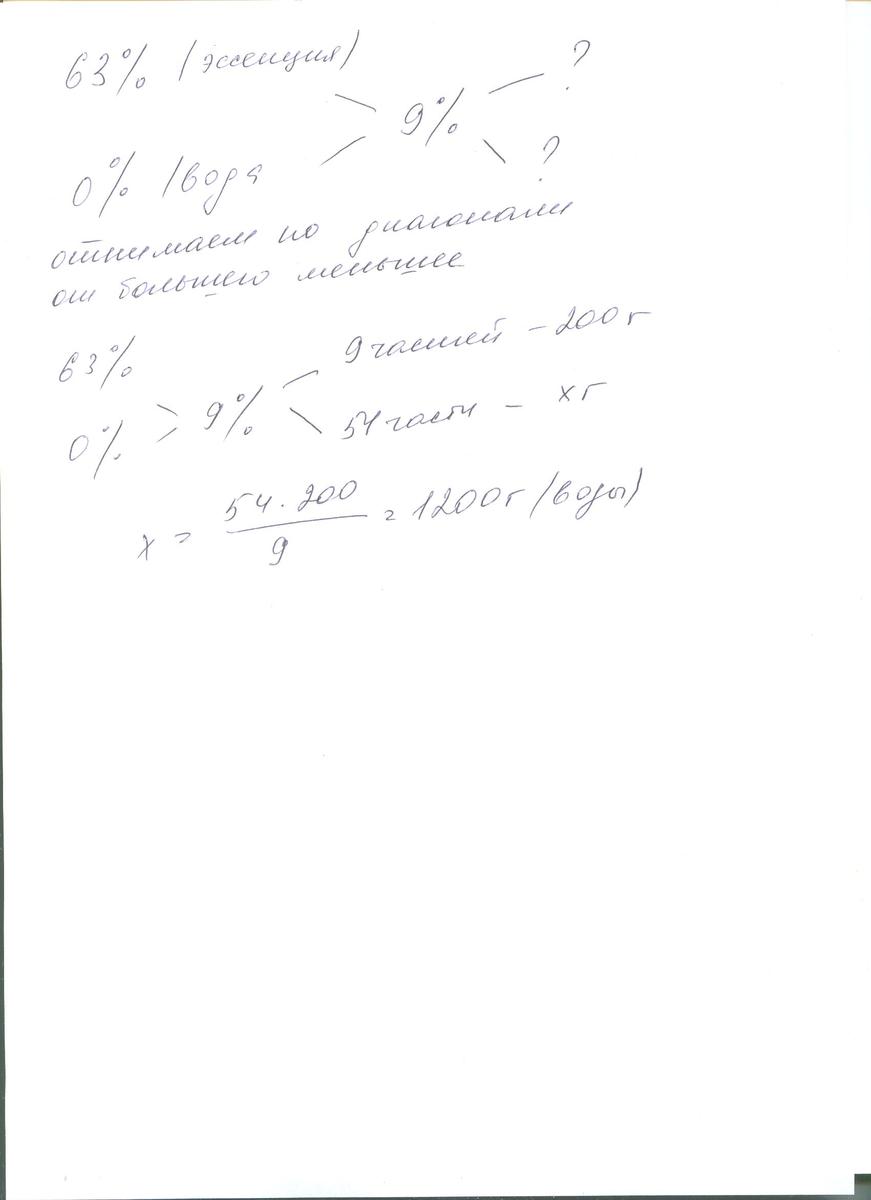 63% (эссенция)
9%
?
0% (вода
?
отнимаем по диагонали
от большего меньшее
63%
9 частей - 200 г
0%
9%
54 части - х г
х = 54 · 200 / 9 = 1200 г (воды)